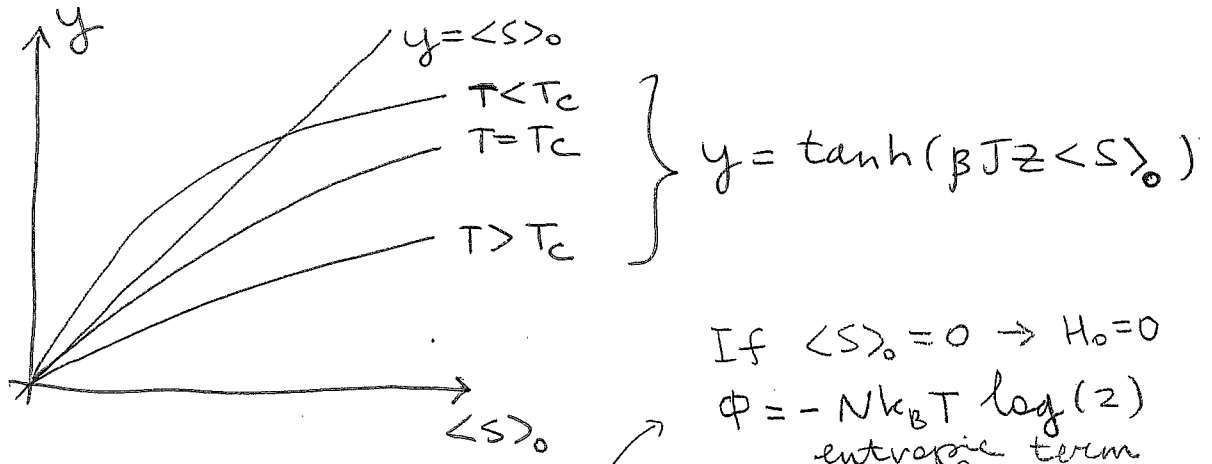 y
y=<S>₀
T<Tc
T=Tc
T>Tc
y = tanh(βJz<S>₀)
<S>₀
If <S>₀ = 0 → H₀=0
Φ = - Nk_BT log(2)
entropic term